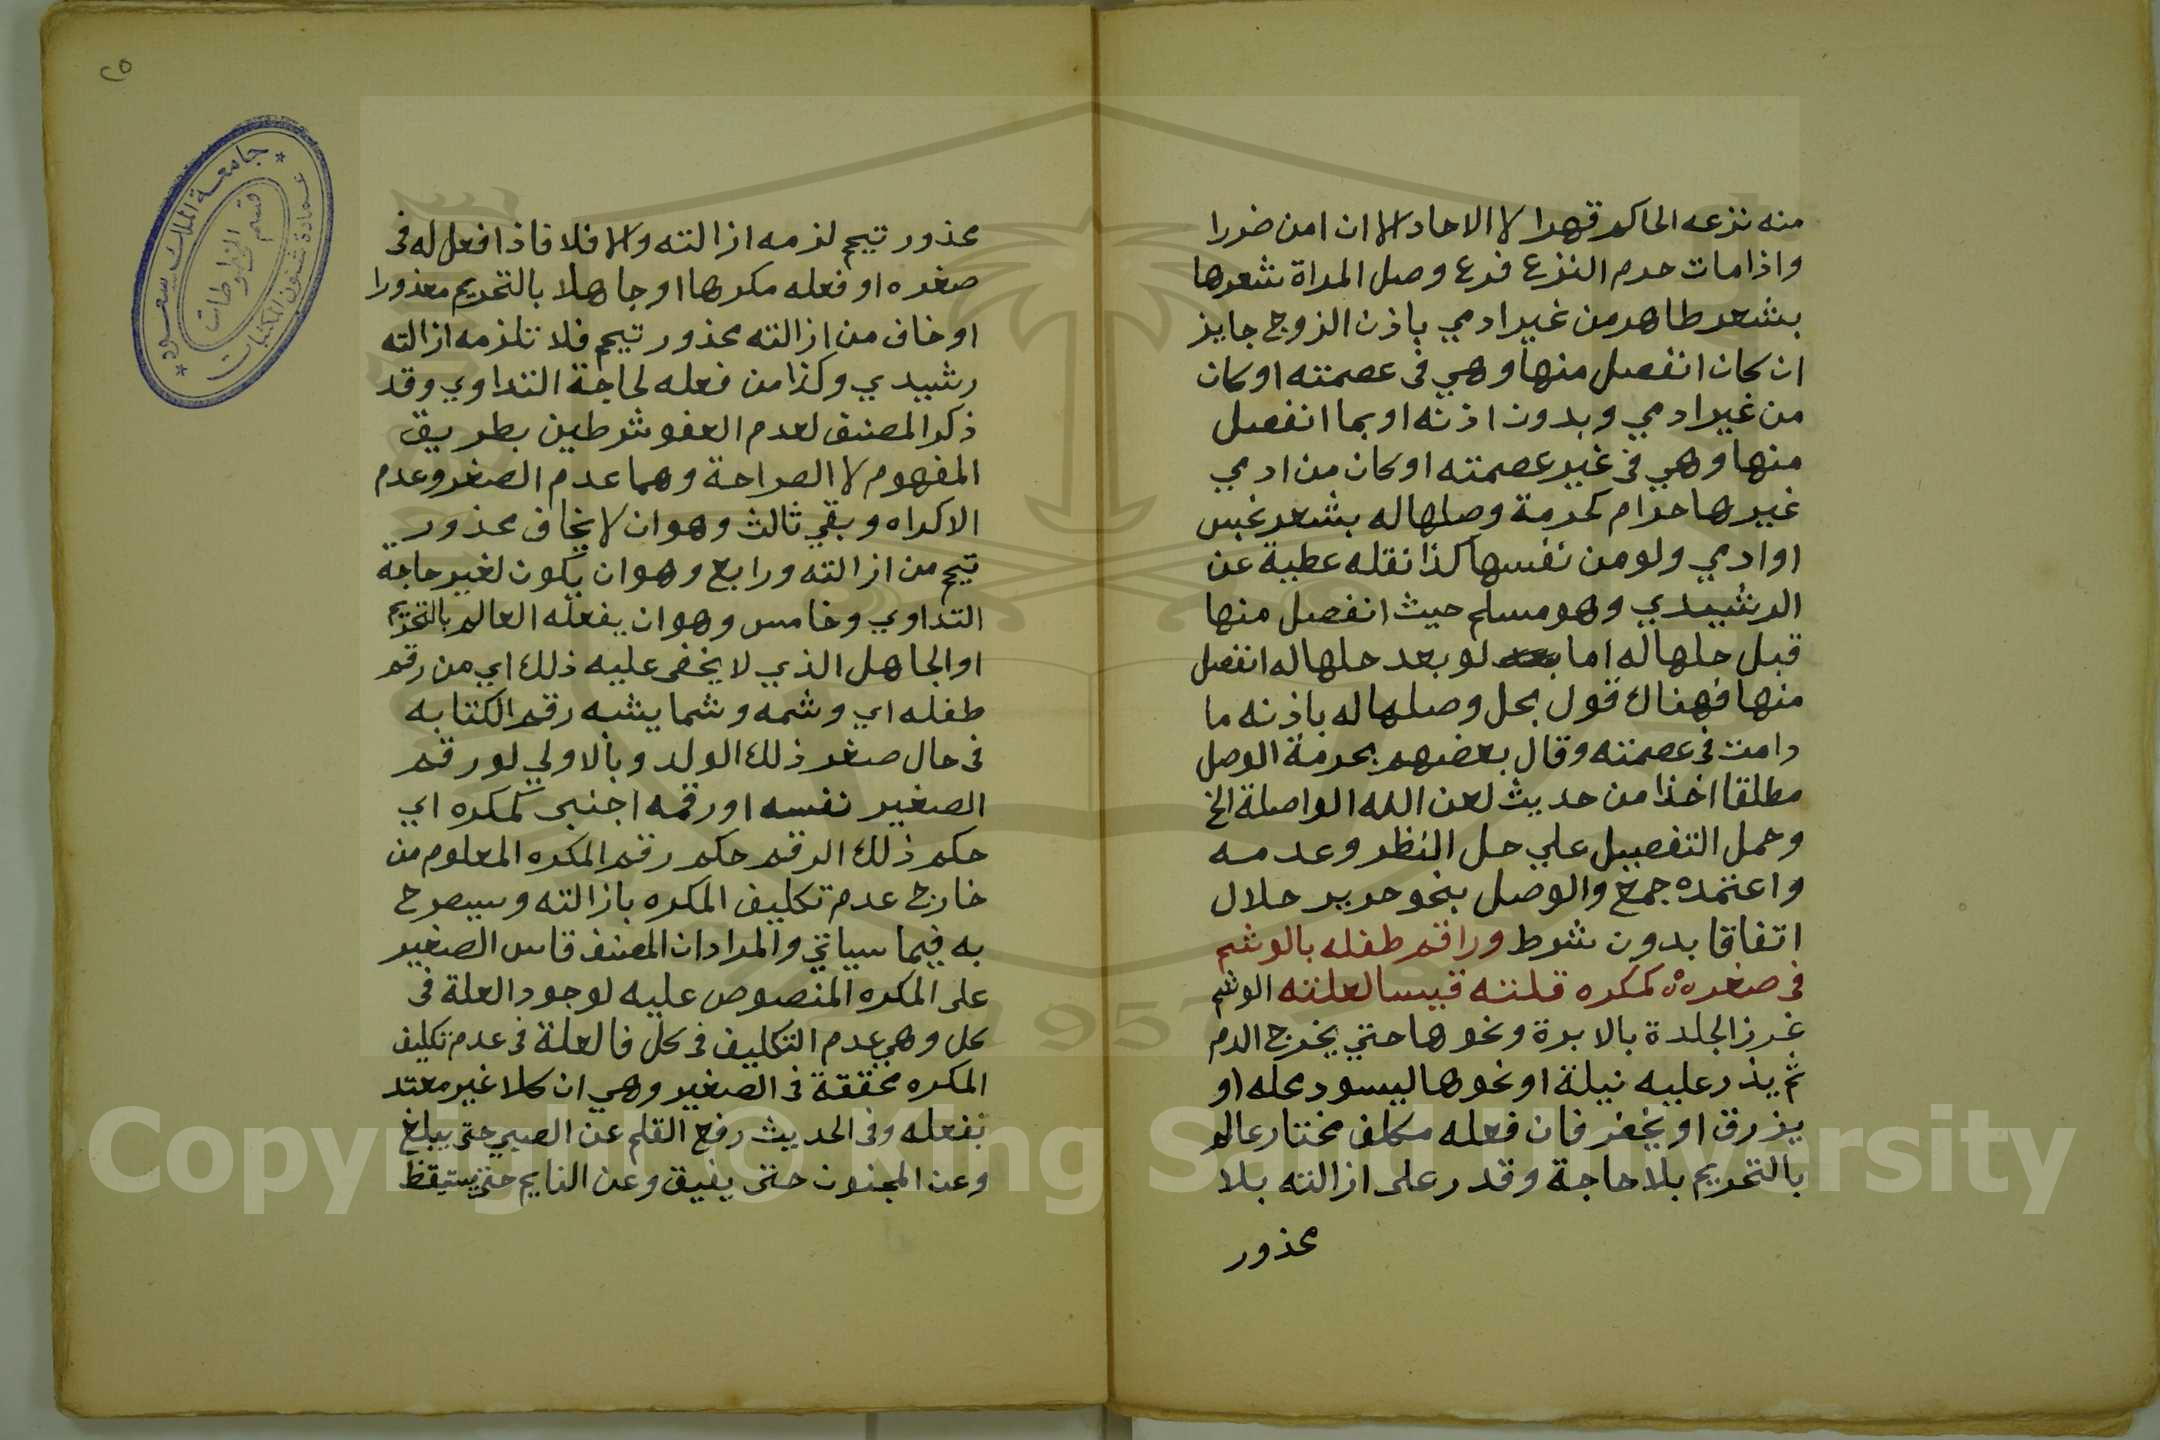 منه نزعه الحاكم قهرا لا الاحاد الا ان امن ضررا
واذا مات حرم النزع فرع وصل المراة شعرها
بشعر طاهر من غير ادمي باذن الزوج جايز
ان كان انفصل منها وهي في عصمته او كان
من غير ادمي وبدون اذنه او بما انفصل
منها وهي في غير عصمته او كان من ادمي
غيرها حرام كحرمة وصلها له بشعر نجس
او ادمي ولو من نفسها كذا نقله عطية عن
الرشيدي وهو مسلم حيث انفصل منها
قبل حلها له اما لو بعد حلها له انفصل
منها فهناك قول بحل وصلها له باذنه ما
دامت في عصمته وقال بعضهم بحرمة الوصل
مطلقا اخذا من حديث لعن الله الواصلة الخ
وحمل التفصيل علي حل النظر وعدمه
واعتمده جمع والوصل بنحو حرير حلال
اتفاقا بدون شرط وراقم طفله بالوشم
في صغره كمكره قلته قيسا لعلته الوشم
غرز الجلدة بالابرة ونحوها حتي يخرج الدم
ثم يذر عليه نيلة او نحوها ليسود محله او
يزرق او يخضر فان فعله مكلف مختار عالم
بالتحريم بلا حاجة وقدر على ازالته بلا
محذور
٢٥
جامعة الملك سعود
عمادة شئون المكتبات
قسم المخطوطات
محذور تيمم لزمه ازالته والا فلا فاذا فعل له في
صغره او فعله مكرها او جاهلا بالتحريم معذورا
او خاف من ازالته محذور تيمم فلا تلزمه ازالته
رشيدي وكذا من فعله لحاجة التداوي وقد
ذكر المصنف لعدم العفو شرطين بطريق
المفهوم لا الصراحة وهما عدم الصغر وعدم
الاكراه وبقي ثالث وهو ان لا يخاف محذور
تيمم من ازالته ورابع وهو ان يكون لغير حاجة
التداوي وخامس وهو ان يفعله العالم بالتحريم
او الجاهل الذي لا يخفى عليه ذلك اي من رقم
طفله اي وشمه وشما يشبه رقم الكتابه
في حال صغر ذلك الولد وبالاولي لو رقم
الصغير نفسه او رقمه اجنبى كمكره اي
حكم ذلك الرقم حكم رقم المكره المعلوم من
خارج عدم تكليف المكره بازالته وسيصرح
به فيما سياتي والمراد ان المصنف قاس الصغير
على المكره المنصوص عليه لوجود العلة في
كل وهي عدم التكليف في كل فالعلة في عدم تكليف
المكره محققة في الصغير وهي ان كلا غير معتد
بفعله وفي الحديث رفع القلم عن الصبي حتى يبلغ
وعن المجنون حتى يفيق وعن النايم حتى يستيقظ
1957
Copyright © King Saud University